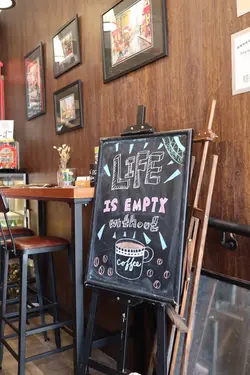 LIFE
IS EMPTY
without
coffee